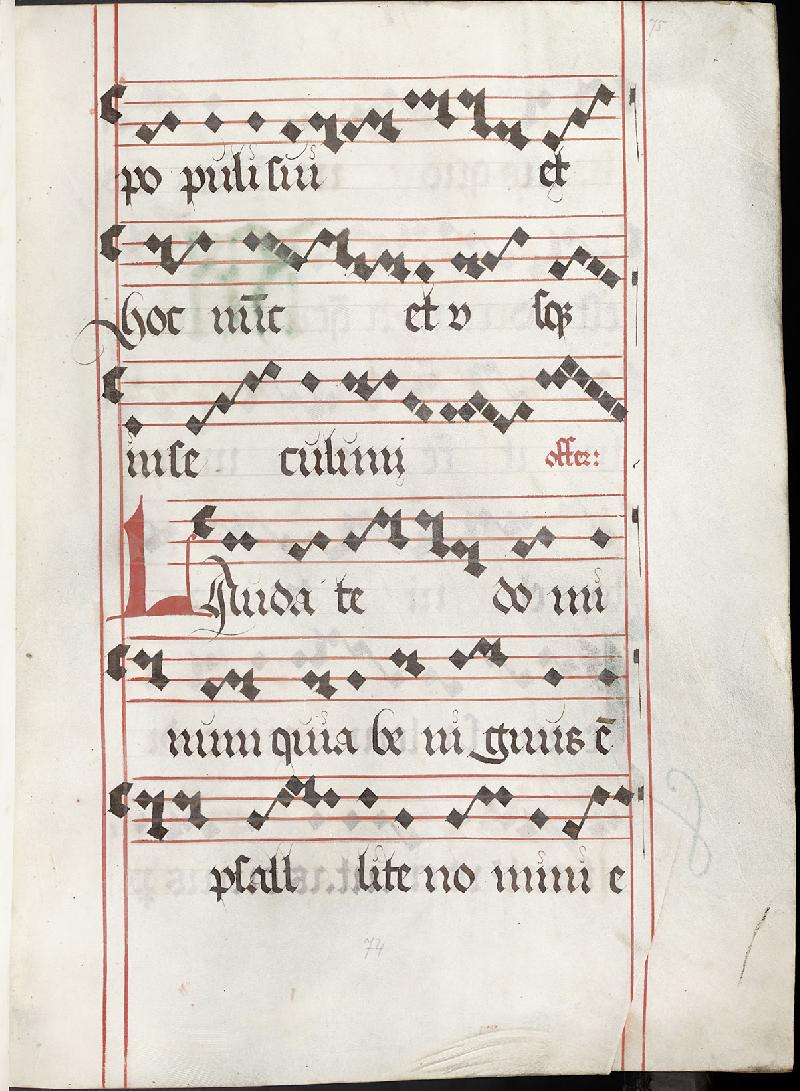 75
po puli sui et
hoc nu̅c et v sq;
inse culum
offer:
Lauda te do mi
num quia be ni gnus e̅
psall lite no mini e
74